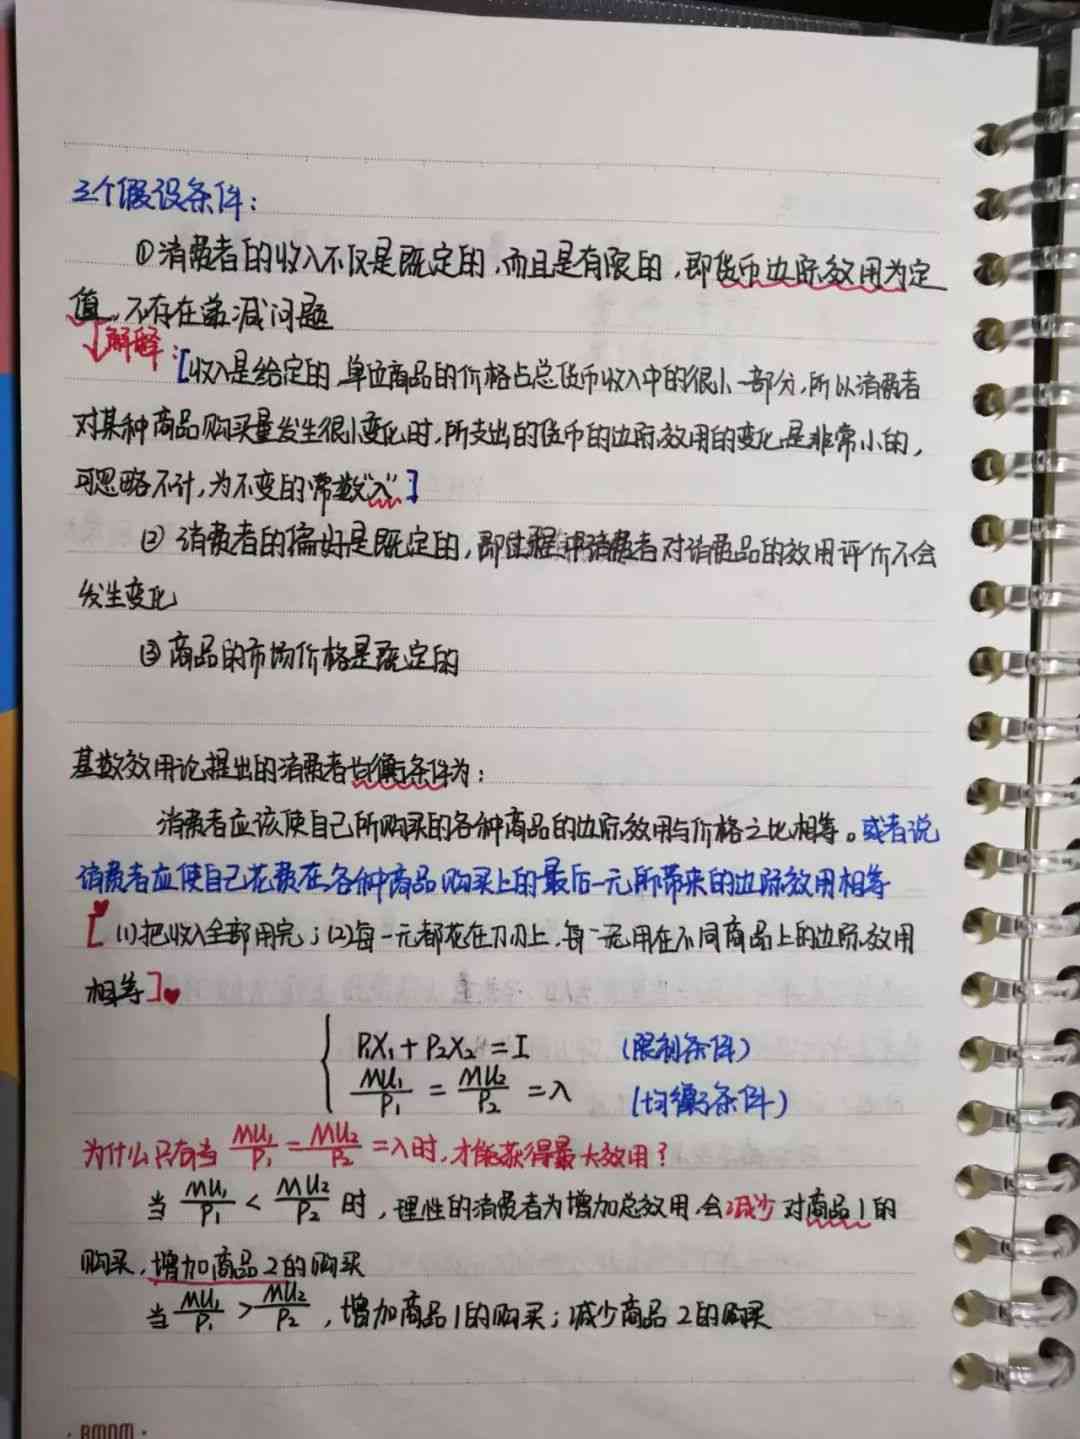 三个假设条件:
①消费者的收入不仅是既定的,而且是有限的,即货币边际效用为定
值,不存在递减问题
解释:[收入是给定的,单位商品的价格占总货币收入中的很小一部分,所以消费者
对某种商品购买量发生很小变化时,所支出的货币的边际效用的变化是非常小的,
可忽略不计,为不变的常数"λ"]
② 消费者的偏好是既定的,即 消费者对消费品的效用评价不会
发生变化
③商品的市场价格是既定的
基数效用论提出的消费者均衡条件为:
消费者应该使自己所购买的各种商品的边际效用与价格之比相等。或者说
消费者应使自己花费在各种商品购买上的最后一元所带来的边际效用相等
[ (1)把收入全部用完;(2)每一元都花在刀刃上,每一元用在不同商品上的边际效用
相等]
P₁X₁+P₂X₂=I (限制条件)
MU₁/P₁ = MU₂/P₂ =λ (均衡条件)
为什么只有当 MU₁/P₁ = MU₂/P₂ =λ时,才能获得最大效用?
当 MU₁/P₁ < MU₂/P₂ 时,理性的消费者为增加总效用,会减少对商品1的
购买,增加商品2的购买
当 MU₁/P₁ > MU₂/P₂ ,增加商品1的购买;减少商品2的购买